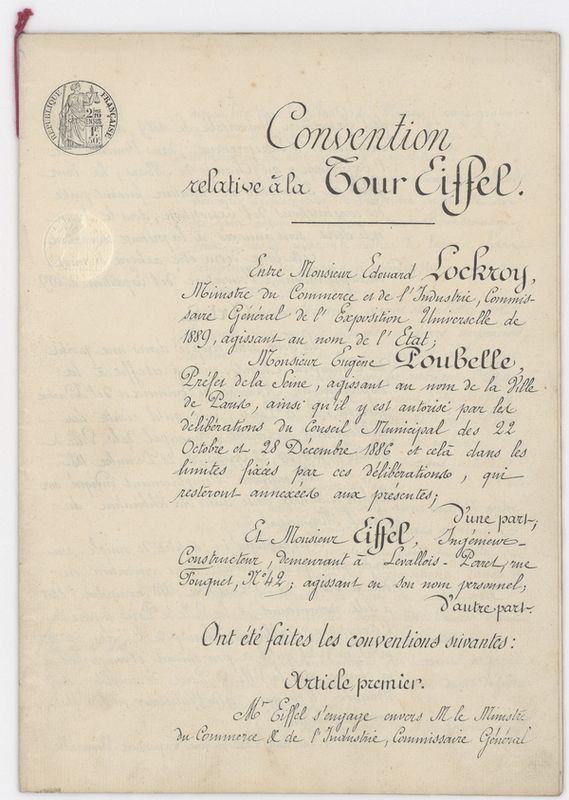 RÉPUBLIQUE FRANÇAISE
2/10
EN SUS
1F
50c
Convention
relative à la Tour Eiffel.
Entre Monsieur Edouard Lockroy,
Ministre du Commerce et de l'Industrie, Commis-
saire Général de l'Exposition Universelle de
1889, agissant au nom de l'Etat;
Monsieur Eugène Poubelle,
Préfet de la Seine, agissant au nom de la Ville
de Paris, ainsi qu'il y est autorisé par les
délibérations du Conseil Municipal des 22
Octobre et 28 Décembre 1886 et celà dans les
limites fixées par ces délibérations, qui
resteront annexées aux présentes;
D'une part;
Et Monsieur Eiffel, Ingénieur-
Constructeur, demeurant à Levallois-Perret, rue
Fouquet, N° 42; agissant en son nom personnel,
D'autre part.
Ont été faites les conventions suivantes:
Article premier.
Mr Eiffel s'engage envers M le Ministre
du Commerce & de l'Industrie, Commissaire Général